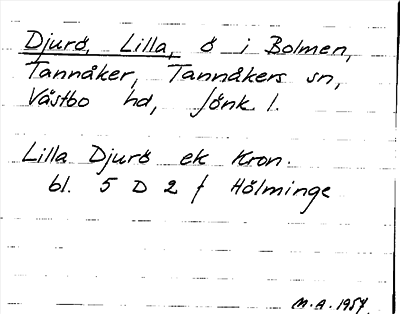 Djurö, Lilla, ö i Bolmen,
Tannåker, Tannåkers sn,
Västbo hd, Jönk l.
Lilla Djurö ek Kron.
bl. 5 D 2 f Hölminge
M.A. 1957